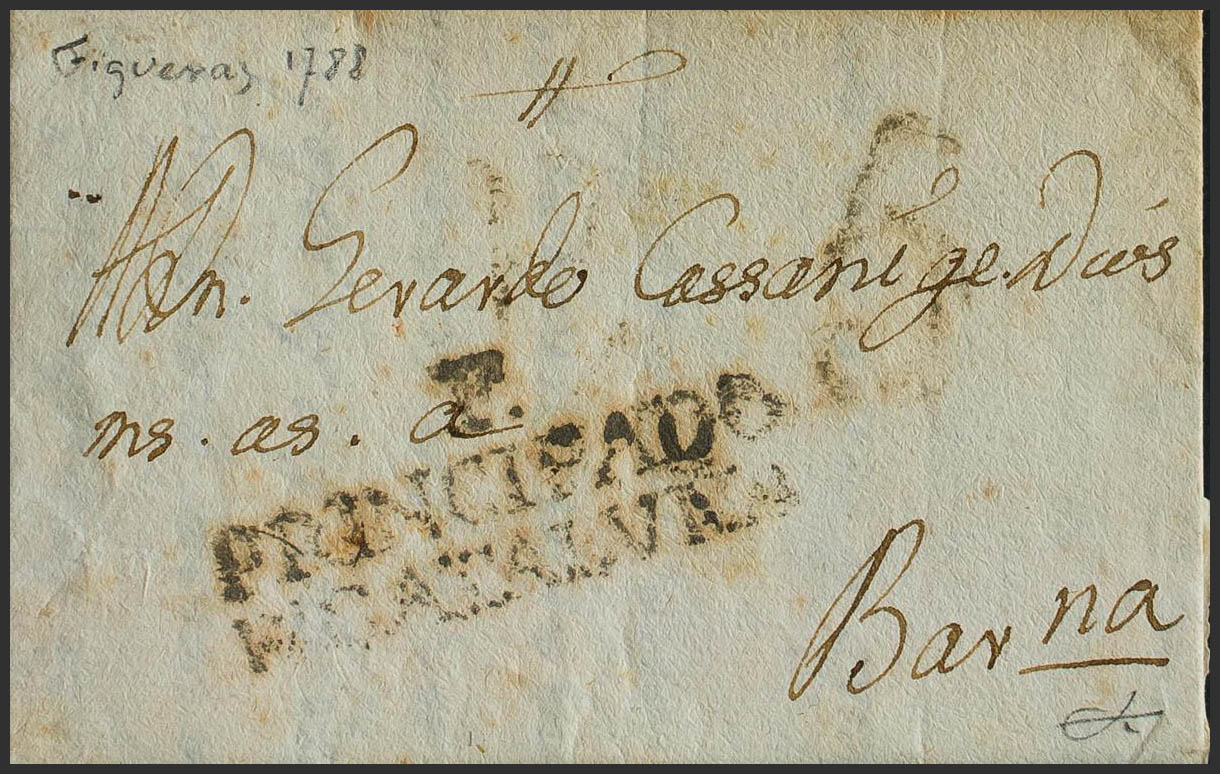 Figueras 1788
A Dn. Gerardo Cassani ge. Dios
ms. as. a
F.
PRINCIPADO
D CATALVÑA
Barna